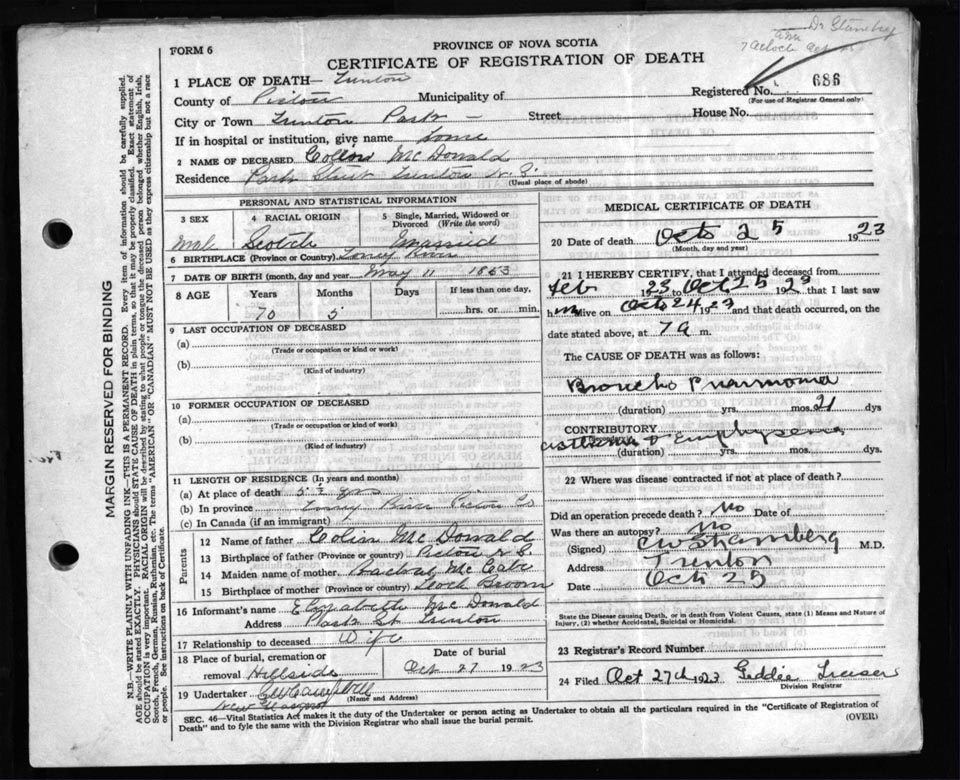 Dr Stramberg
7 aclock
FORM 6
PROVINCE OF NOVA SCOTIA
CERTIFICATE OF REGISTRATION OF DEATH
1 PLACE OF DEATH— Trenton
Registered No. 686
(For use of Registrar General only)
County of Pictou Municipality of
City or Town Trenton Park — Street House No.
If in hospital or institution, give name home
2 NAME OF DECEASED Colin McDonald
Residence Park Street Trenton N.S.
(Usual place of abode)
PERSONAL AND STATISTICAL INFORMATION
3 SEX
Male
4 RACIAL ORIGIN
Scotch
5 Single, Married, Widowed or Divorced (Write the word)
Married
6 BIRTHPLACE (Province or Country) Toney River
7 DATE OF BIRTH (month, day and year) May 11 1853
8 AGE Years Months Days If less than one day,
70 5 hrs. or min.
9 LAST OCCUPATION OF DECEASED
(a)
(Trade or occupation or kind of work)
(b)
(Kind of industry)
10 FORMER OCCUPATION OF DECEASED
(a)
(Trade or occupation or kind of work)
(b)
(Kind of industry)
11 LENGTH OF RESIDENCE (In years and months)
(a) At place of death yrs
(b) In province Toney River Pictou Co
(c) In Canada (if an immigrant)
Parents
12 Name of father Colin McDonald
13 Birthplace of father (Province or country) Pictou N.S.
14 Maiden name of mother Rachael McCabe
15 Birthplace of mother (Province or Country) Loch Broom
16 Informant's name Elizabeth McDonald
Address Park St. Trenton
17 Relationship to deceased Wife
18 Place of burial, cremation or removal Hillside
Date of burial
Oct 27 1923
19 Undertaker Campbell
(Name and Address)
New Glasgow
MEDICAL CERTIFICATE OF DEATH
20 Date of death Oct 25 1923
(Month, day and year)
21 I HEREBY CERTIFY, that I attended deceased from
Feb 1923 to Oct 25 1923 that I last saw
him alive on Oct 24 1923 and that death occurred, on the
date stated above, at 7 a m.
The CAUSE OF DEATH was as follows:
Broncho Pneumonia
(duration) yrs. mos. 21 dys
CONTRIBUTORY
asthma & Emphysema
(duration) yrs. mos. dys.
22 Where was disease contracted if not at place of death?
Did an operation precede death? No Date of
Was there an autopsy? No
(Signed) CW Stramberg M.D.
Address Trenton
Date Oct 25
State the Disease causing Death, or in death from Violent Causes, state (1) Means and Nature of Injury, (2) whether Accidental, Suicidal or Homicidal.
23 Registrar's Record Number
24 Filed Oct 27th 1923 Giddie
Division Registrar
SEC. 46—Vital Statistics Act makes it the duty of the Undertaker or person acting as Undertaker to obtain all the particulars required in the "Certificate of Registration of Death" and to fyle the same with the Division Registrar who shall issue the burial permit.
(OVER)
MARGIN RESERVED FOR BINDING
N.B.—WRITE PLAINLY WITH UNFADING INK—THIS IS A PERMANENT RECORD. Every item of information should be carefully supplied.
AGE should be stated EXACTLY. PHYSICIANS should STATE CAUSE OF DEATH in plain terms, so that it may be properly classified. Exact statement of
OCCUPATION is very important. RACIAL ORIGIN will be described by stating to what people or tongue the deceased person belonged whether English, Irish,
Scotch, French, German, Russian, Ruthenian, etc. The terms "AMERICAN" OR "CANADIAN" MUST NOT BE USED as they express citizenship but not a race
or people. See instructions on back of Certificate.